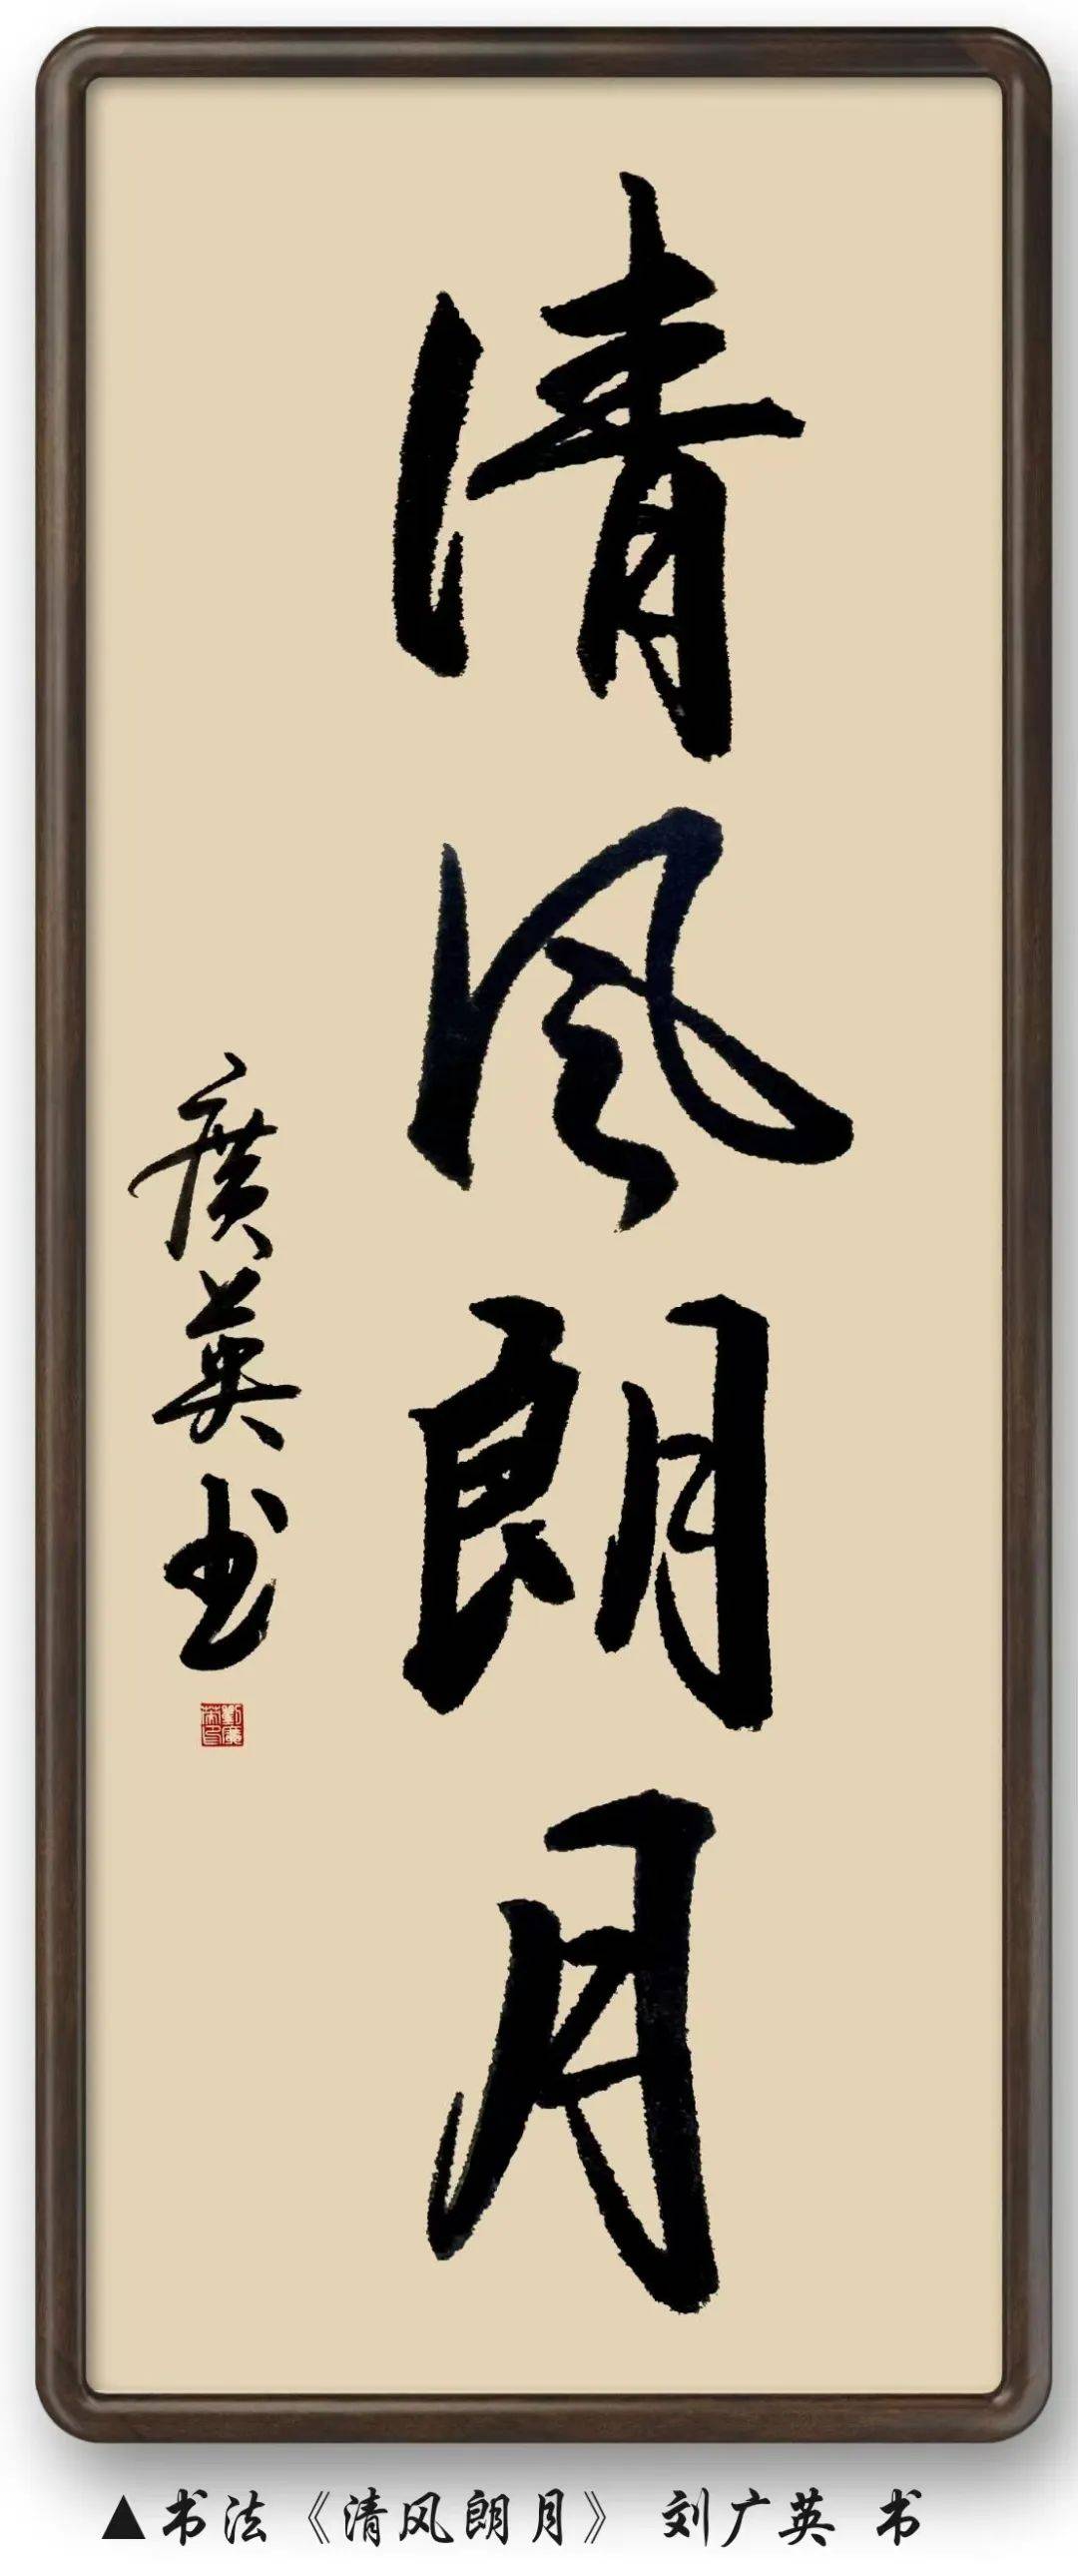 清风朗月
廣英书
▲书法《清风朗月》 刘广英 书